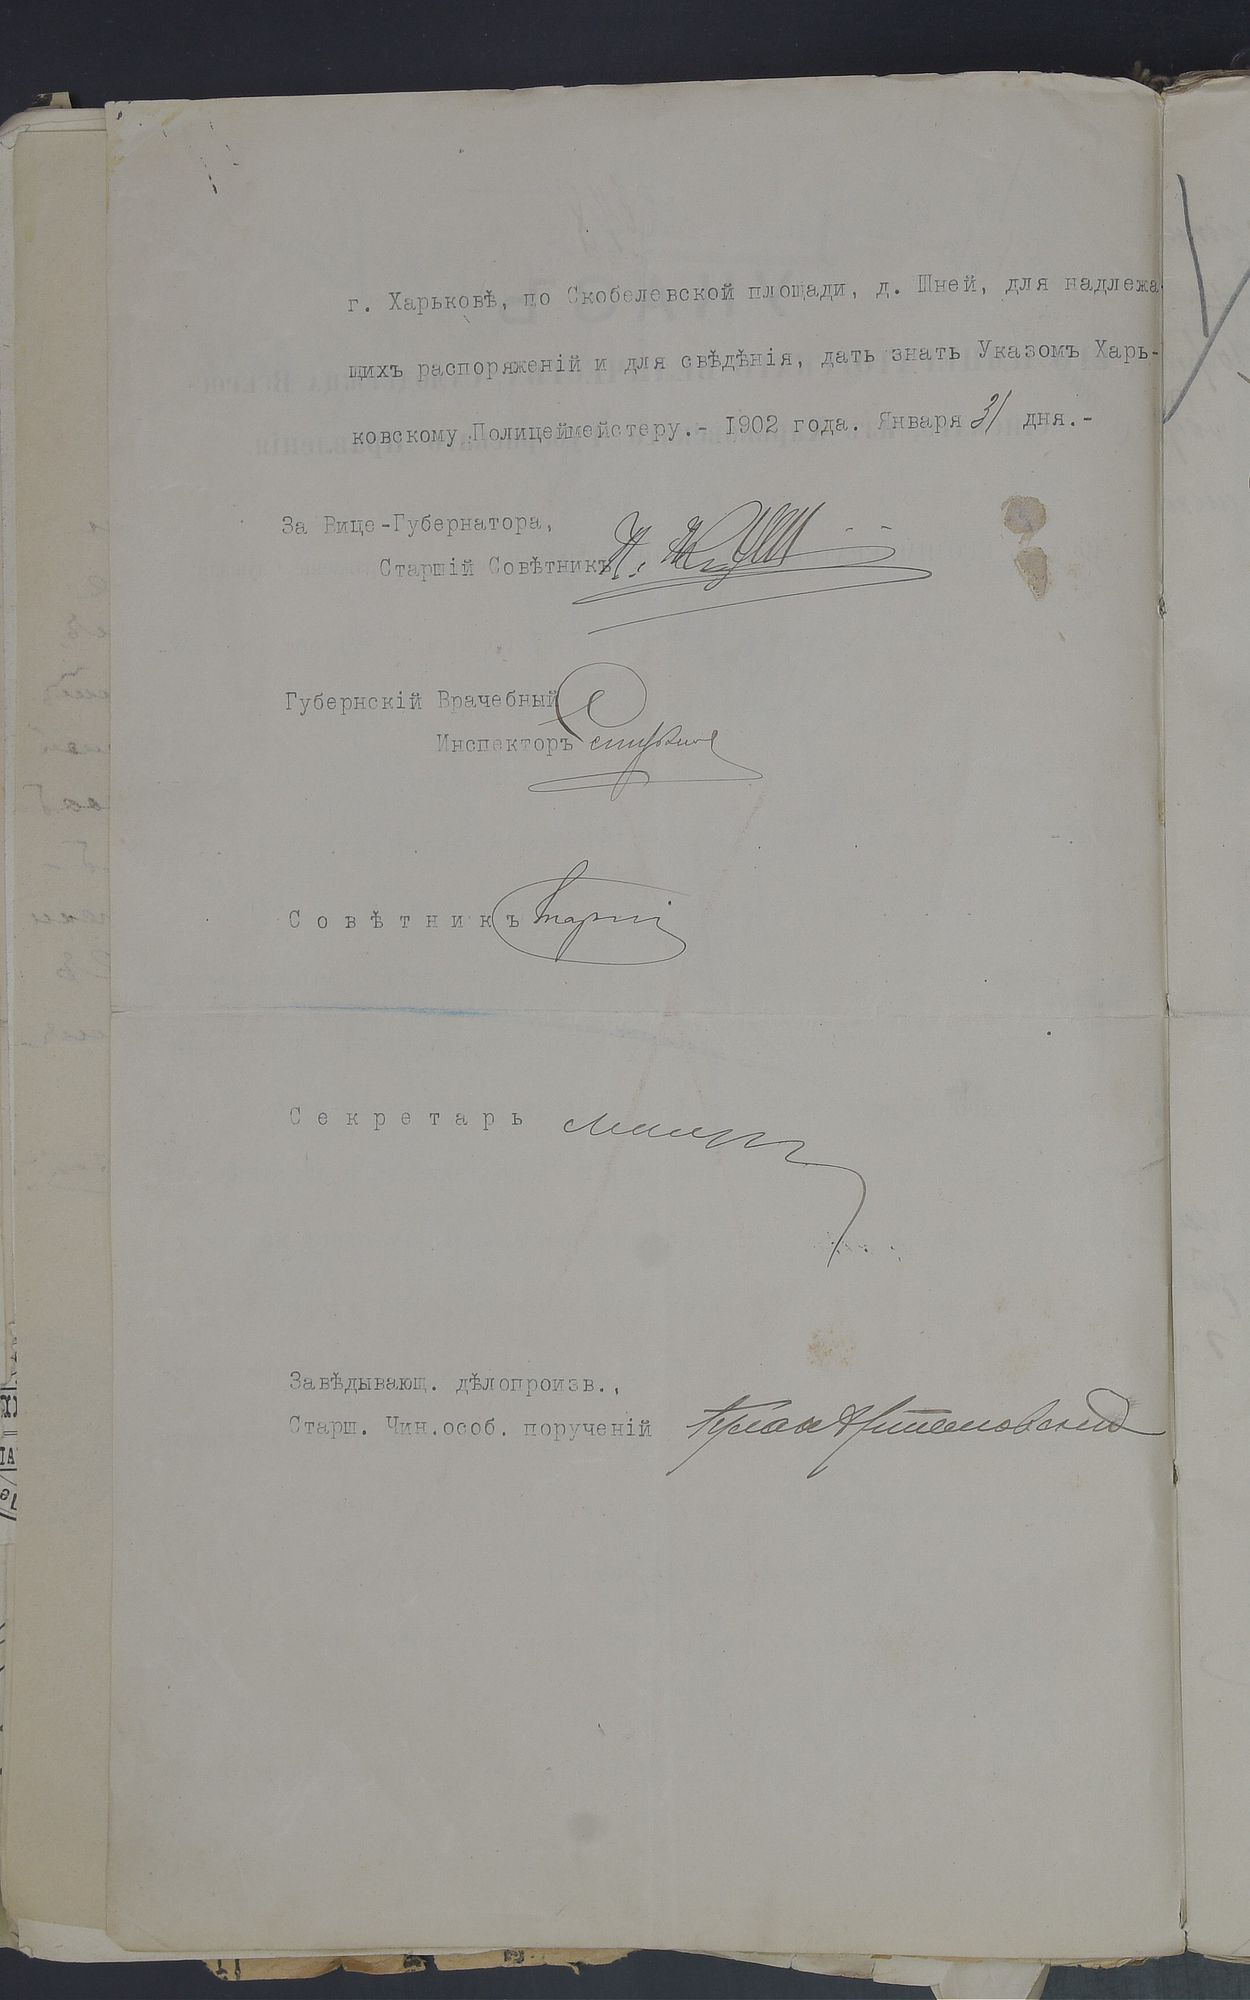 г. Харьковѣ, по Скобелевской площади, д. Шней, для надлежа
щихъ распоряженій и для свѣдѣнія, дать знать Указомъ Харь-
ковскому Полицеймейстеру.- 1902 года. Января 31 дня.-
За Вице-Губернатора,
Старшій Совѣтникъ
Губернскій Врачебный
Инспекторъ
Совѣтникъ
Секретарь
Завѣдывающ. дѣлопроизв.,
Старш. Чин.особ. порученій Гулак Артемовский